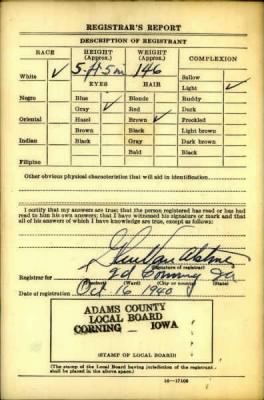 REGISTRAR'S REPORT
DESCRIPTION OF REGISTRANT
RACE HEIGHT (Approx.) WEIGHT (Approx.) COMPLEXION
White ✓ 5 ft 5 in 146 Sallow
EYES HAIR Light ✓
Negro Blue Blonde Ruddy
Gray ✓ Red Dark
Oriental Hazel Brown ✓ Freckled
Brown Black Light brown
Indian Black Gray Dark brown
Bald Black
Filipino
Other obvious physical characteristic that will aid in identification
I certify that my answers are true; that the person registered has read or has had
read to him his own answers; that I have witnessed his signature or mark and that
all of his answers of which I have knowledge are true, except as follows:
(Signature of registrar)
Registrar for 2d Corning Ia
(Precinct) (Ward) (City or county) (State)
Date of registration Oct 16 1940
ADAMS COUNTY
LOCAL BOARD
CORNING IOWA
(STAMP OF LOCAL BOARD)
(The stamp of the Local Board having jurisdiction of the registrant
shall be placed in the above space.)
16—17105